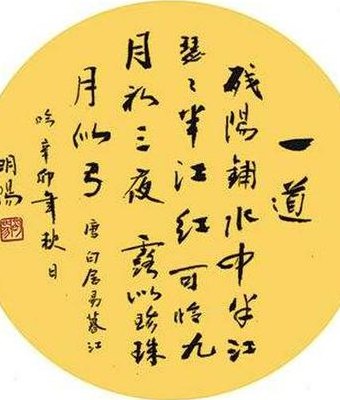 一道
残陽鋪水中半江
瑟〻半江红可怜九
月初三夜露似珍珠
月似弓唐白居易暮江
吟辛卯年秋日
明陽